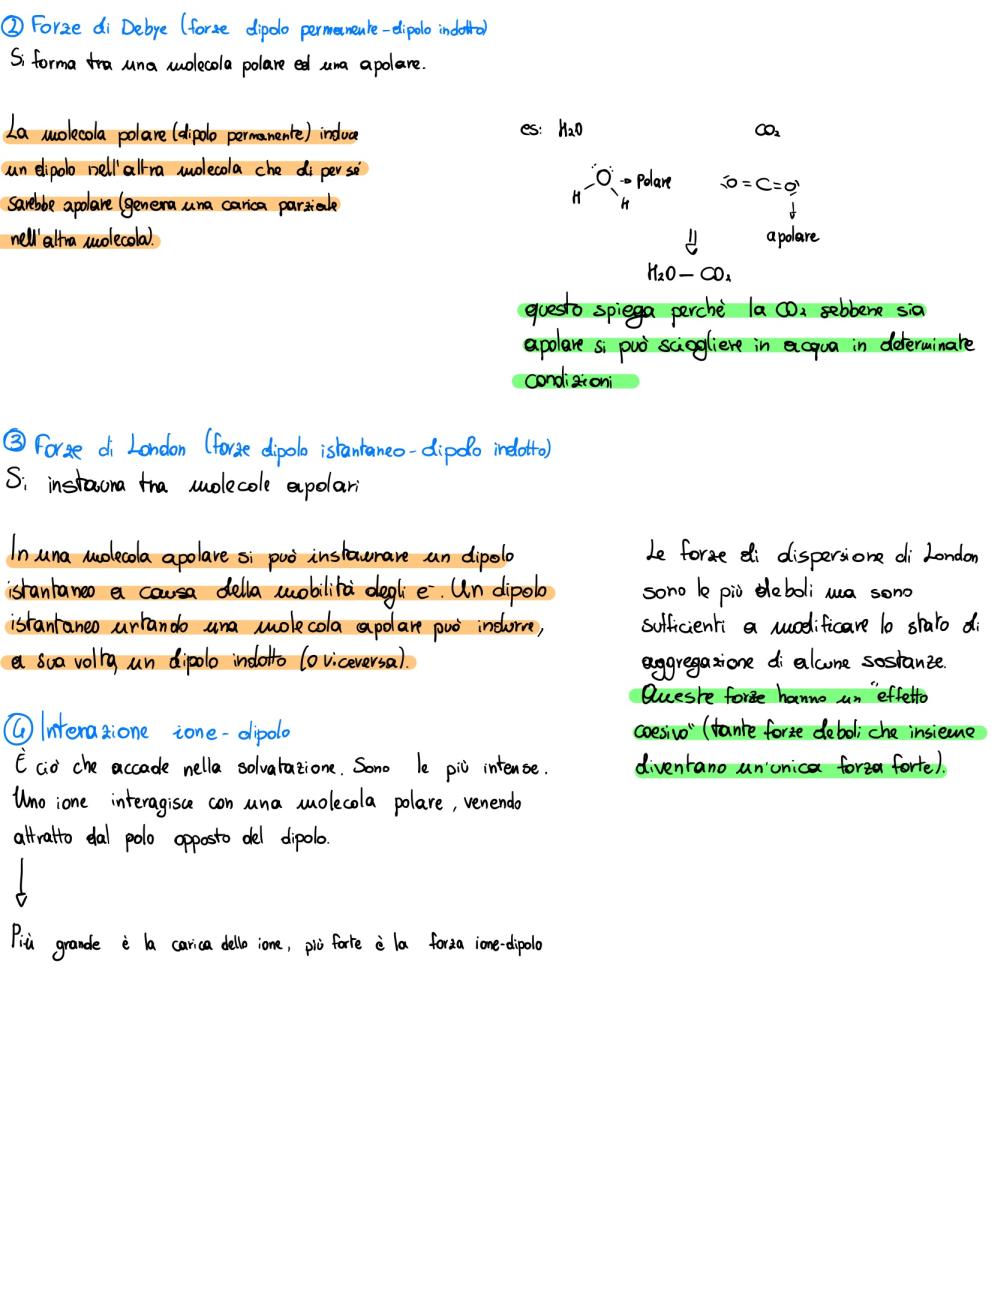 ② Forze di Debye (forze dipolo permanente-dipolo indotto)
Si forma tra una molecola polare ed una apolare.
La molecola polare (dipolo permanente) induce
un dipolo nell'altra molecola che di per sé
sarebbe apolare (genera una carica parziale
nell'altra molecola).
es: H₂O CO₂
O → Polare O=C=O
H H
⇓ ↓
apolare
H₂O — CO₂
questo spiega perchè la CO₂ sebbene sia
apolare si può sciogliere in acqua in determinate
condizioni
③ Forze di London (forze dipolo istantaneo-dipolo indotto)
Si instaura tra molecole apolari
In una molecola apolare si può instaurare un dipolo
istantaneo a causa della mobilità degli e⁻. Un dipolo
istantaneo urtando una molecola apolare può indurre,
a sua volta, un dipolo indotto (o viceversa).
Le forze di dispersione di London
sono le più deboli ma sono
sufficienti a modificare lo stato di
aggregazione di alcune sostanze.
Queste forze hanno un "effetto
coesivo" (tante forze deboli che insieme
diventano un'unica forza forte).
④ Interazione ione-dipolo
È ciò che accade nella solvatazione. Sono le più intense.
Uno ione interagisce con una molecola polare, venendo
attratto dal polo opposto del dipolo.
↓
Più grande è la carica dello ione, più forte è la forza ione-dipolo